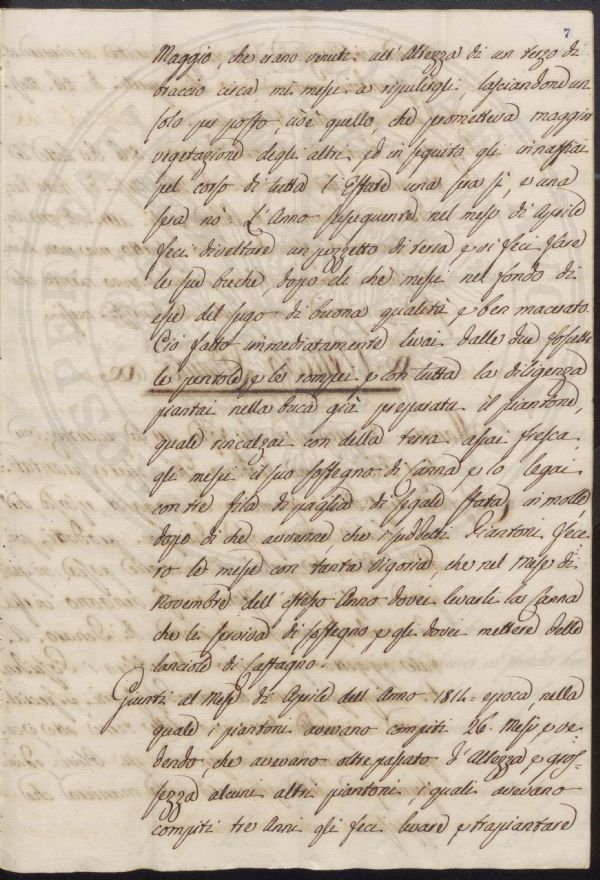 7
Maggio, che erano venuti all'Altezza di un terzo di
braccio circa, mi mesi a ripulirgli, lasciandone un
solo per posto, cioè quello, che prometteva maggior
vegetazione degli altri, ed in seguito gli innaffiai
pel corso di tutta l'Estate una sera sì, e una
sera nò. L'Anno susseguente nel mese di Aprile
feci diveltare un pezzetto di terra e vi feci fare
le sue buche, dopo di che mesi nel fondo di
esse del sugo di buona qualità, e ben macerato.
Ciò fatto immediatamente levai dalle due fossette
le pentole e le rompei e con tutta la diligenza
piantai nella buca già preparata il piantone,
quale rincalzai con della terra assai fresca,
gli mesi il suo sostegno di Canna e lo legai
con tre fila di paglia di segale stata in molle,
dopo di che avvenne che i suddetti Piantoni fece=
ro le mise con tanta vigoria, che nel Mese di
Novembre dell'istesso Anno dovei levarli la Canna
che li serviva di sostegno e gli dovei mettere delle
lanciole di Castagno.
Giunti al Mese di Aprile dell'Anno 1814 = epoca, nella
quale i piantoni avevano compiti 26. Mesi e ve=
dendo, che avevano oltrepassato d'Altezza e gros=
sezza alcuni altri piantoni, i quali avevano
compiti tre Anni gli feci levare e trapiantare